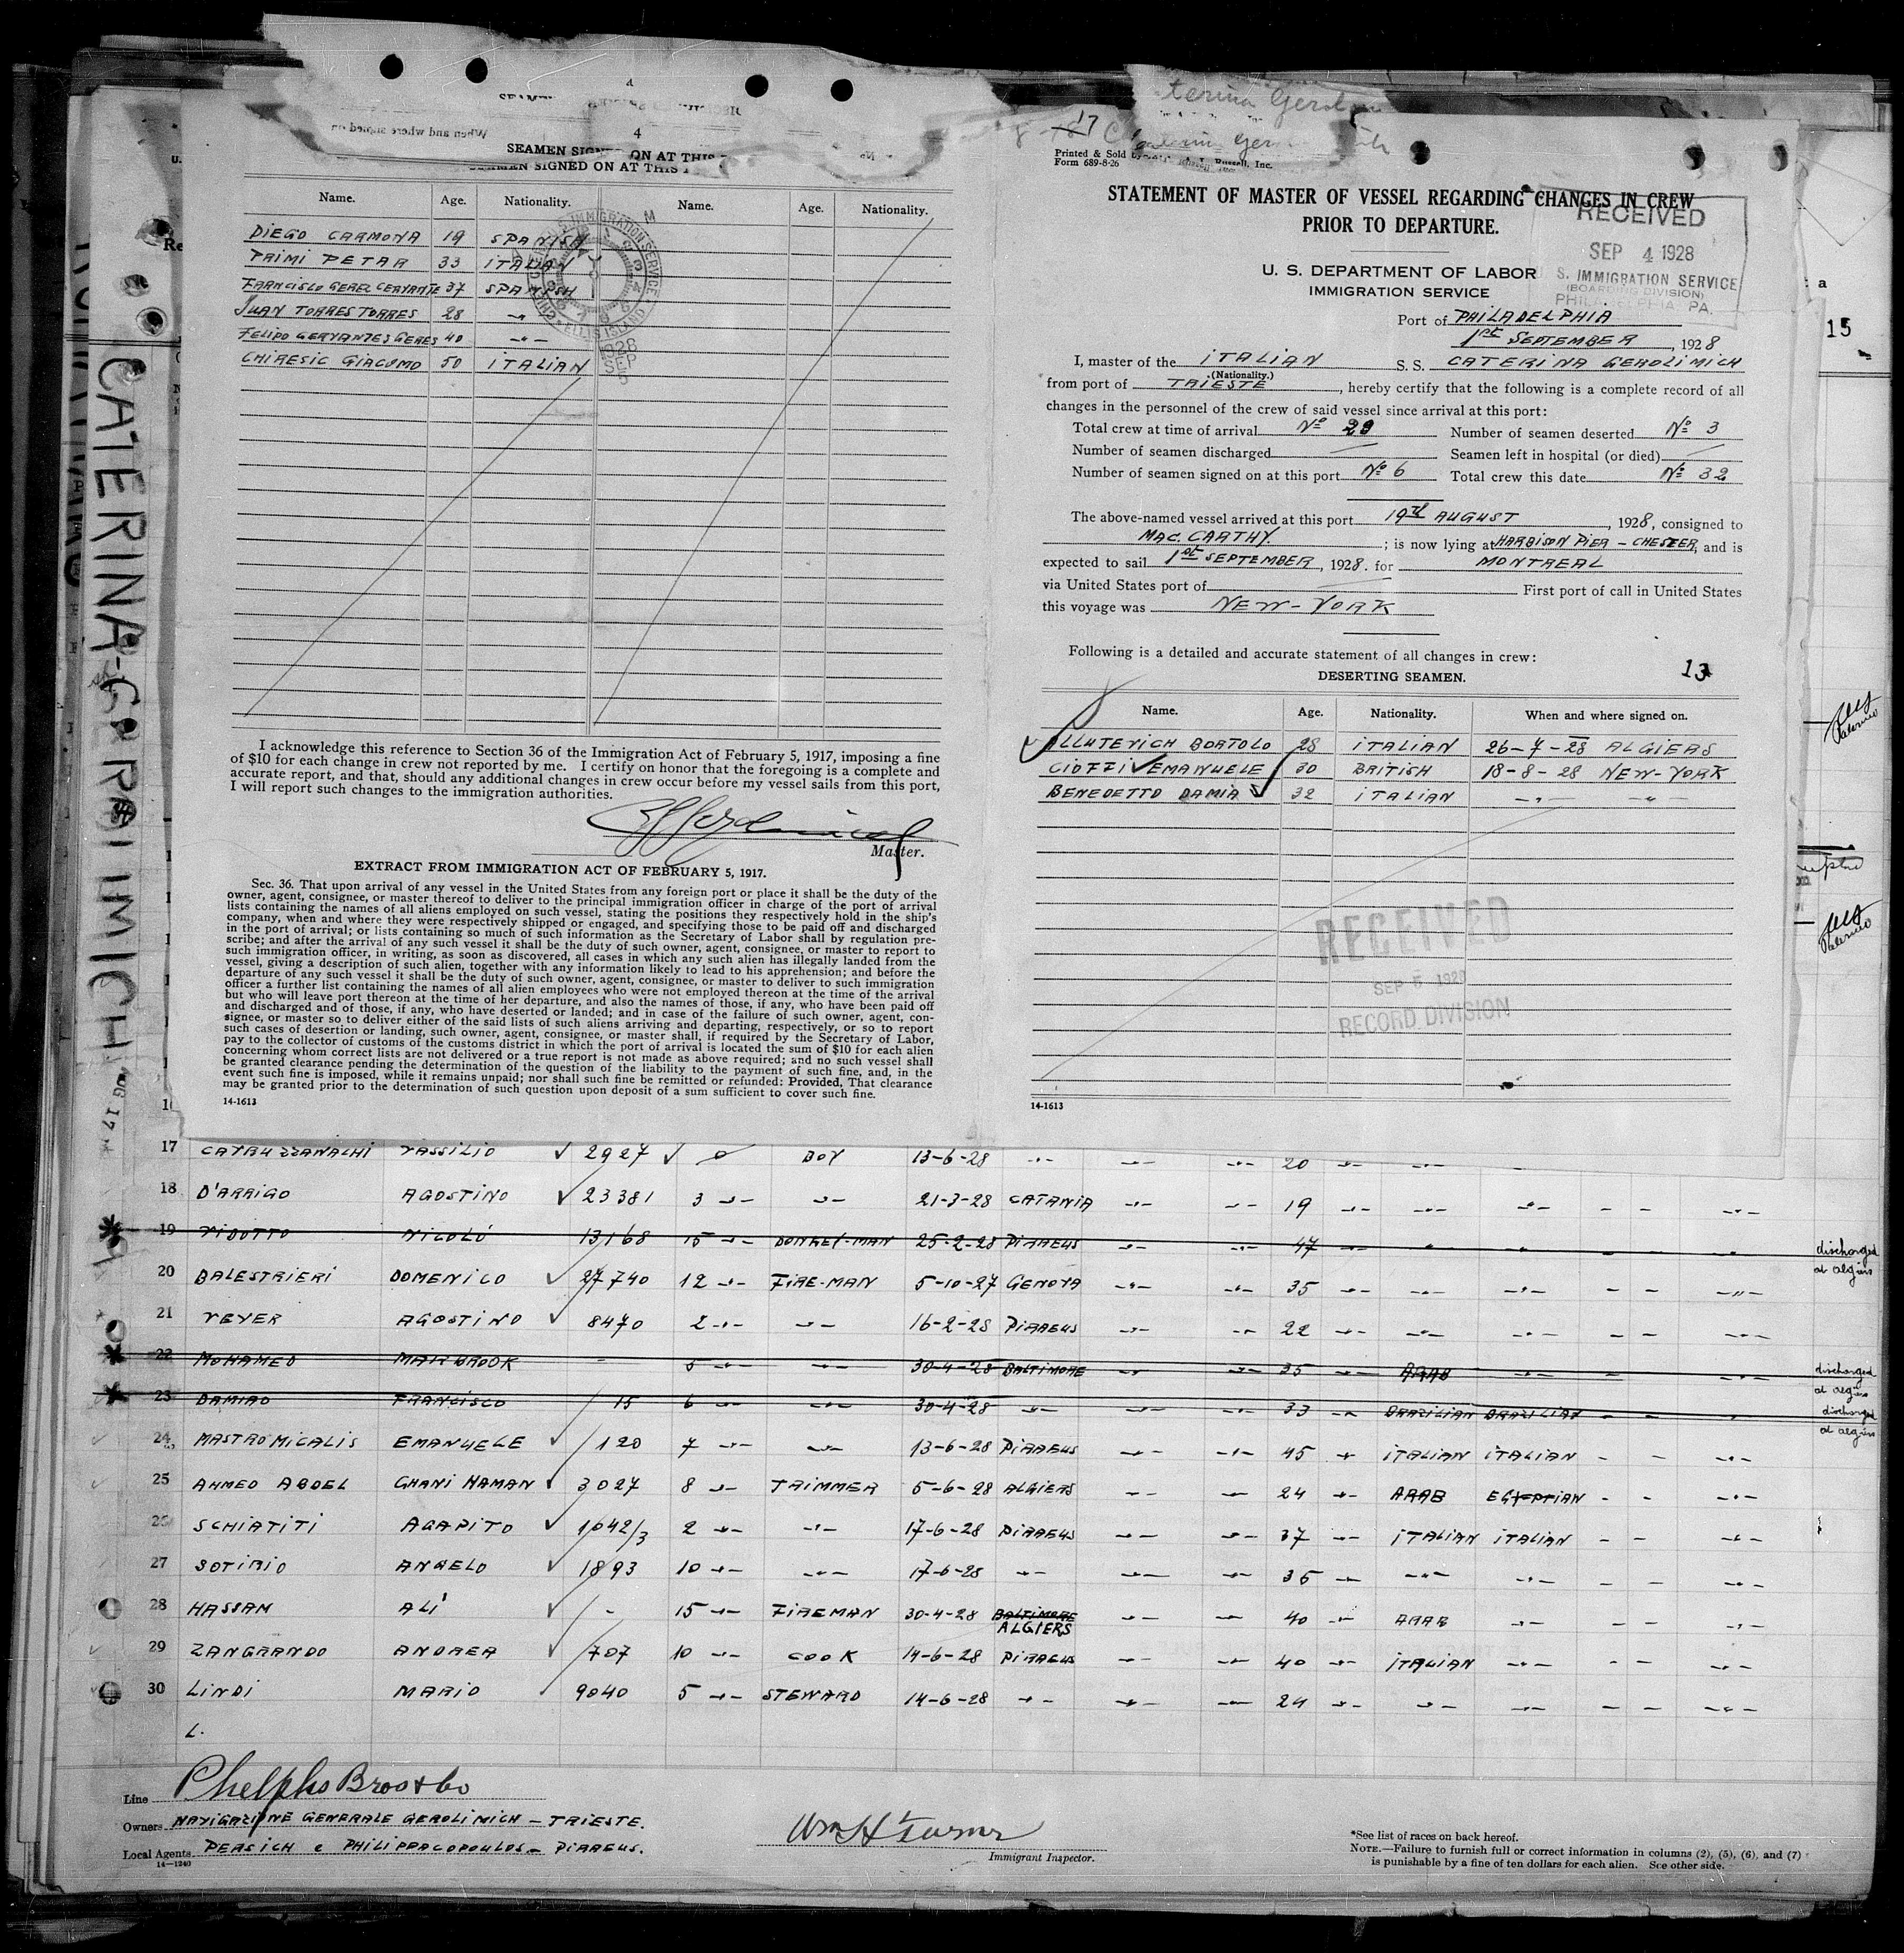 CATERINA GEROLIMICH
4
When and where signed on
4
SEAMEN SIGNED ON AT THIS
SEAMEN SIGNED ON AT THIS
Name. Age. Nationality. Name. Age. Nationality.
DIEGO CARMONA 19 SPANISH
PRIMI PETAR 33 ITALIAN
FARNCISCO GEREZ CERVANTE 37 SPANISH
JUAN TORRES TORRES 28 -"-
FELIPO GERVANZES GERES 40 -"-
CHIRESIC GIACOMO 50 ITALIAN
IMMIGRATION SERVICE
ELLIS ISLAND
1928
SEP
5
I acknowledge this reference to Section 36 of the Immigration Act of February 5, 1917, imposing a fine
of $10 for each change in crew not reported by me. I certify on honor that the foregoing is a complete and
accurate report, and that, should any additional changes in crew occur before my vessel sails from this port,
I will report such changes to the immigration authorities.
Master.
EXTRACT FROM IMMIGRATION ACT OF FEBRUARY 5, 1917.
Sec. 36. That upon arrival of any vessel in the United States from any foreign port or place it shall be the duty of the
owner, agent, consignee, or master thereof to deliver to the principal immigration officer in charge of the port of arrival
lists containing the names of all aliens employed on such vessel, stating the positions they respectively hold in the ship's
company, when and where they were respectively shipped or engaged, and specifying those to be paid off and discharged
in the port of arrival; or lists containing so much of such information as the Secretary of Labor shall by regulation pre-
scribe; and after the arrival of any such vessel it shall be the duty of such owner, agent, consignee, or master to report to
such immigration officer, in writing, as soon as discovered, all cases in which any such alien has illegally landed from the
vessel, giving a description of such alien, together with any information likely to lead to his apprehension; and before the
departure of any such vessel it shall be the duty of such owner, agent, consignee, or master to deliver to such immigration
officer a further list containing the names of all alien employees who were not employed thereon at the time of the arrival
but who will leave port thereon at the time of her departure, and also the names of those, if any, who have been paid off
and discharged and of those, if any, who have deserted or landed; and in case of the failure of such owner, agent, con-
signee, or master so to deliver either of the said lists of such aliens arriving and departing, respectively, or so to report
such cases of desertion or landing, such owner, agent, consignee, or master shall, if required by the Secretary of Labor,
pay to the collector of customs of the customs district in which the port of arrival is located the sum of $10 for each alien
concerning whom correct lists are not delivered or a true report is not made as above required; and no such vessel shall
be granted clearance pending the determination of the question of the liability to the payment of such fine, and, in the
event such fine is imposed, while it remains unpaid; nor shall such fine be remitted or refunded: Provided, That clearance
may be granted prior to the determination of such question upon deposit of a sum sufficient to cover such fine.
14-1613
terina Gerol
17
Printed & Sold by Russell, Inc.
Form 689-8-26
STATEMENT OF MASTER OF VESSEL REGARDING CHANGES IN CREW
PRIOR TO DEPARTURE.
RECEIVED
SEP 4 1928
U. S. IMMIGRATION SERVICE
(BOARDING DIVISION)
PHILADELPHIA, PA.
U. S. DEPARTMENT OF LABOR
IMMIGRATION SERVICE
Port of PHILADELPHIA
1st SEPTEMBER, 1928
I, master of the ITALIAN S. S. CATERINA GEROLIMICH
(Nationality.)
from port of TRIESTE, hereby certify that the following is a complete record of all
changes in the personnel of the crew of said vessel since arrival at this port:
Total crew at time of arrival Nº 29 Number of seamen deserted Nº 3
Number of seamen discharged — Seamen left in hospital (or died) —
Number of seamen signed on at this port Nº 6 Total crew this date Nº 32
The above-named vessel arrived at this port 19th AUGUST, 1928, consigned to
MAC. CARTHY; is now lying at HARBISON PIER - CHESTER, and is
expected to sail 1st SEPTEMBER, 1928. for MONTREAL
via United States port of — First port of call in United States
this voyage was NEW-YORK
Following is a detailed and accurate statement of all changes in crew:
13
DESERTING SEAMEN.
Name. Age. Nationality. When and where signed on.
ALLUTEVICH BORTOLO 28 ITALIAN 26-7-28 ALGIERS
CIOFFI EMANUELE 30 BRITISH 18-8-28 NEW-YORK
BENEDETTO DAMIA 32 ITALIAN -"- -"-
RECEIVED
SEP 5 1928
RECORD DIVISION
14-1613
15
17 CATRUZZANACHI VASSILIO 2927 0 BOY 13-6-28 -"- -"- -"- 20 -"- -"-
18 D'ARRIGO AGOSTINO 23381 3 -"- -"- 21-3-28 CATANIA -"- -"- 19 -"- -"- -"- - - -"-
19 VIDOTTO NICOLÓ 13168 15 -"- DONKEY-MAN 25-2-28 PIRAEUS -"- -"- 47 -"- discharged at algiers
20 BALESTRIERI DOMENICO 27740 12 -"- FIRE-MAN 5-10-27 GENOVA -"- -"- 35 -"- -"- -"- - - -"-
21 VEYER AGOSTINO 8470 2 -"- -"- 16-2-28 PIRAEUS -"- -"- 22 -"- -"- -"- - - -"-
22 MOHAMED MAHBROOK - 5 -"- -"- 30-4-28 BALTIMORE -"- -"- 35 -"- ARAB -"- discharged at algiers
23 DAMIAO FRANCISCO 15 6 -"- -"- 30-4-28 -"- -"- -"- 33 -"- BRAZILIAN BRAZILIAN - - -"- discharged at algiers
24 MASTROMICALIS EMANUELE 120 7 -"- -"- 13-6-28 PIRAEUS -"- -"- 45 -"- ITALIAN ITALIAN - - -"-
25 AHMED ABDEL GHANI HAMAN 3027 8 -"- TRIMMER 5-6-28 ALGIERS -"- -"- 24 -"- ARAB EGYPTIAN - - -"-
26 SCHIATITI AGAPITO 1042/3 2 -"- -"- 17-6-28 PIRAEUS -"- -"- 37 -"- ITALIAN ITALIAN - - -"-
27 SOTIRIO ANGELO 1893 10 -"- -"- 17-6-28 -"- -"- -"- 35 -"- -"- -"- - - -"-
28 HASSAN ALI' - 15 -"- FIREMAN 30-4-28 BALTIMORE ALGIERS -"- -"- 40 -"- ARAB -"- - - -"-
29 ZANGRANDO ANDREA 707 10 -"- COOK 14-6-28 PIRAEUS -"- -"- 40 -"- ITALIAN -"- - - -"-
30 LINDI MARIO 9040 5 -"- STEWARD 14-6-28 -"- -"- -"- 24 -"- -"- -"- - - -"-
L.
Line Phelphs Bros & Co
Owners NAVIGAZIONE GENERALE GEROLIMICH - TRIESTE.
Local Agents PERSICH e PHILIPPACOPOULOS - PIRAEUS.
14-1240
Wm H Turner
Immigrant Inspector.
*See list of races on back hereof.
NOTE.—Failure to furnish full or correct information in columns (2), (5), (6), and (7)
is punishable by a fine of ten dollars for each alien. See other side.